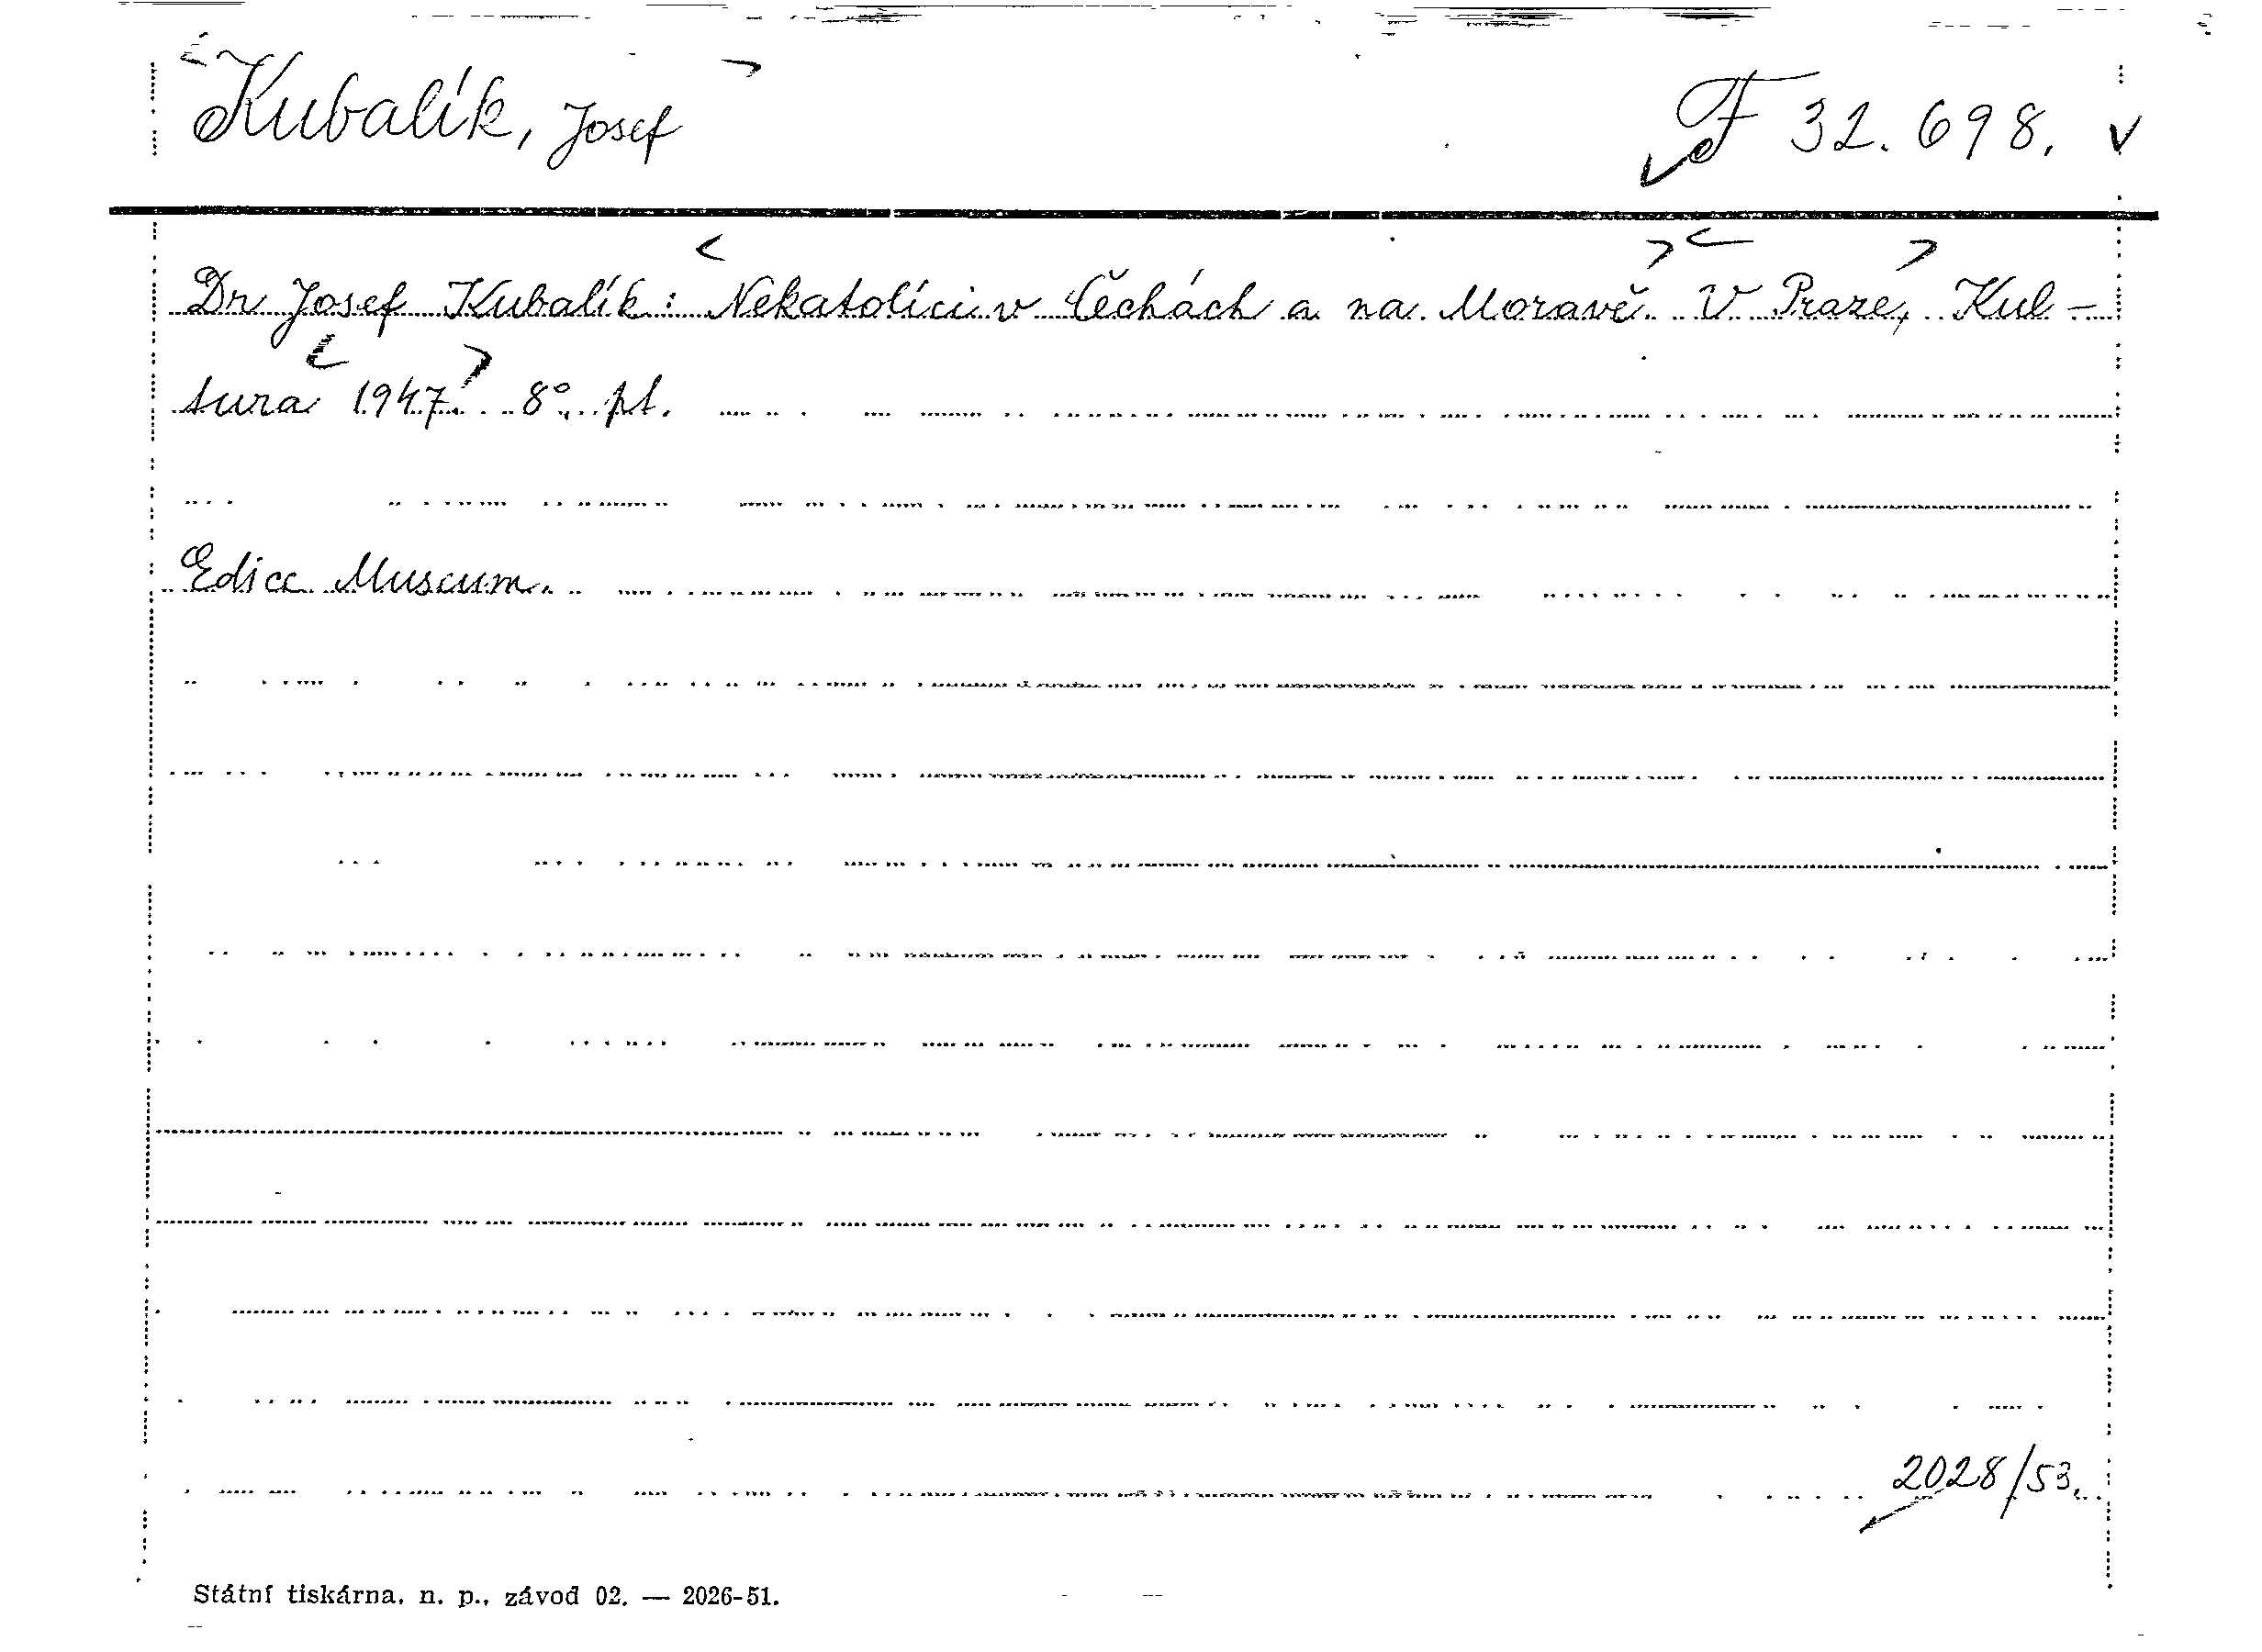 Kubalík, Josef F 32.698.
Dr Josef Kubalík: Nekatolíci v Čechách a na Moravě. V Praze, Kul-
tura 1947. 8°. pt.
Edice Museum.
2028/53.
Státní tiskárna, n. p., závod 02. — 2026-51.